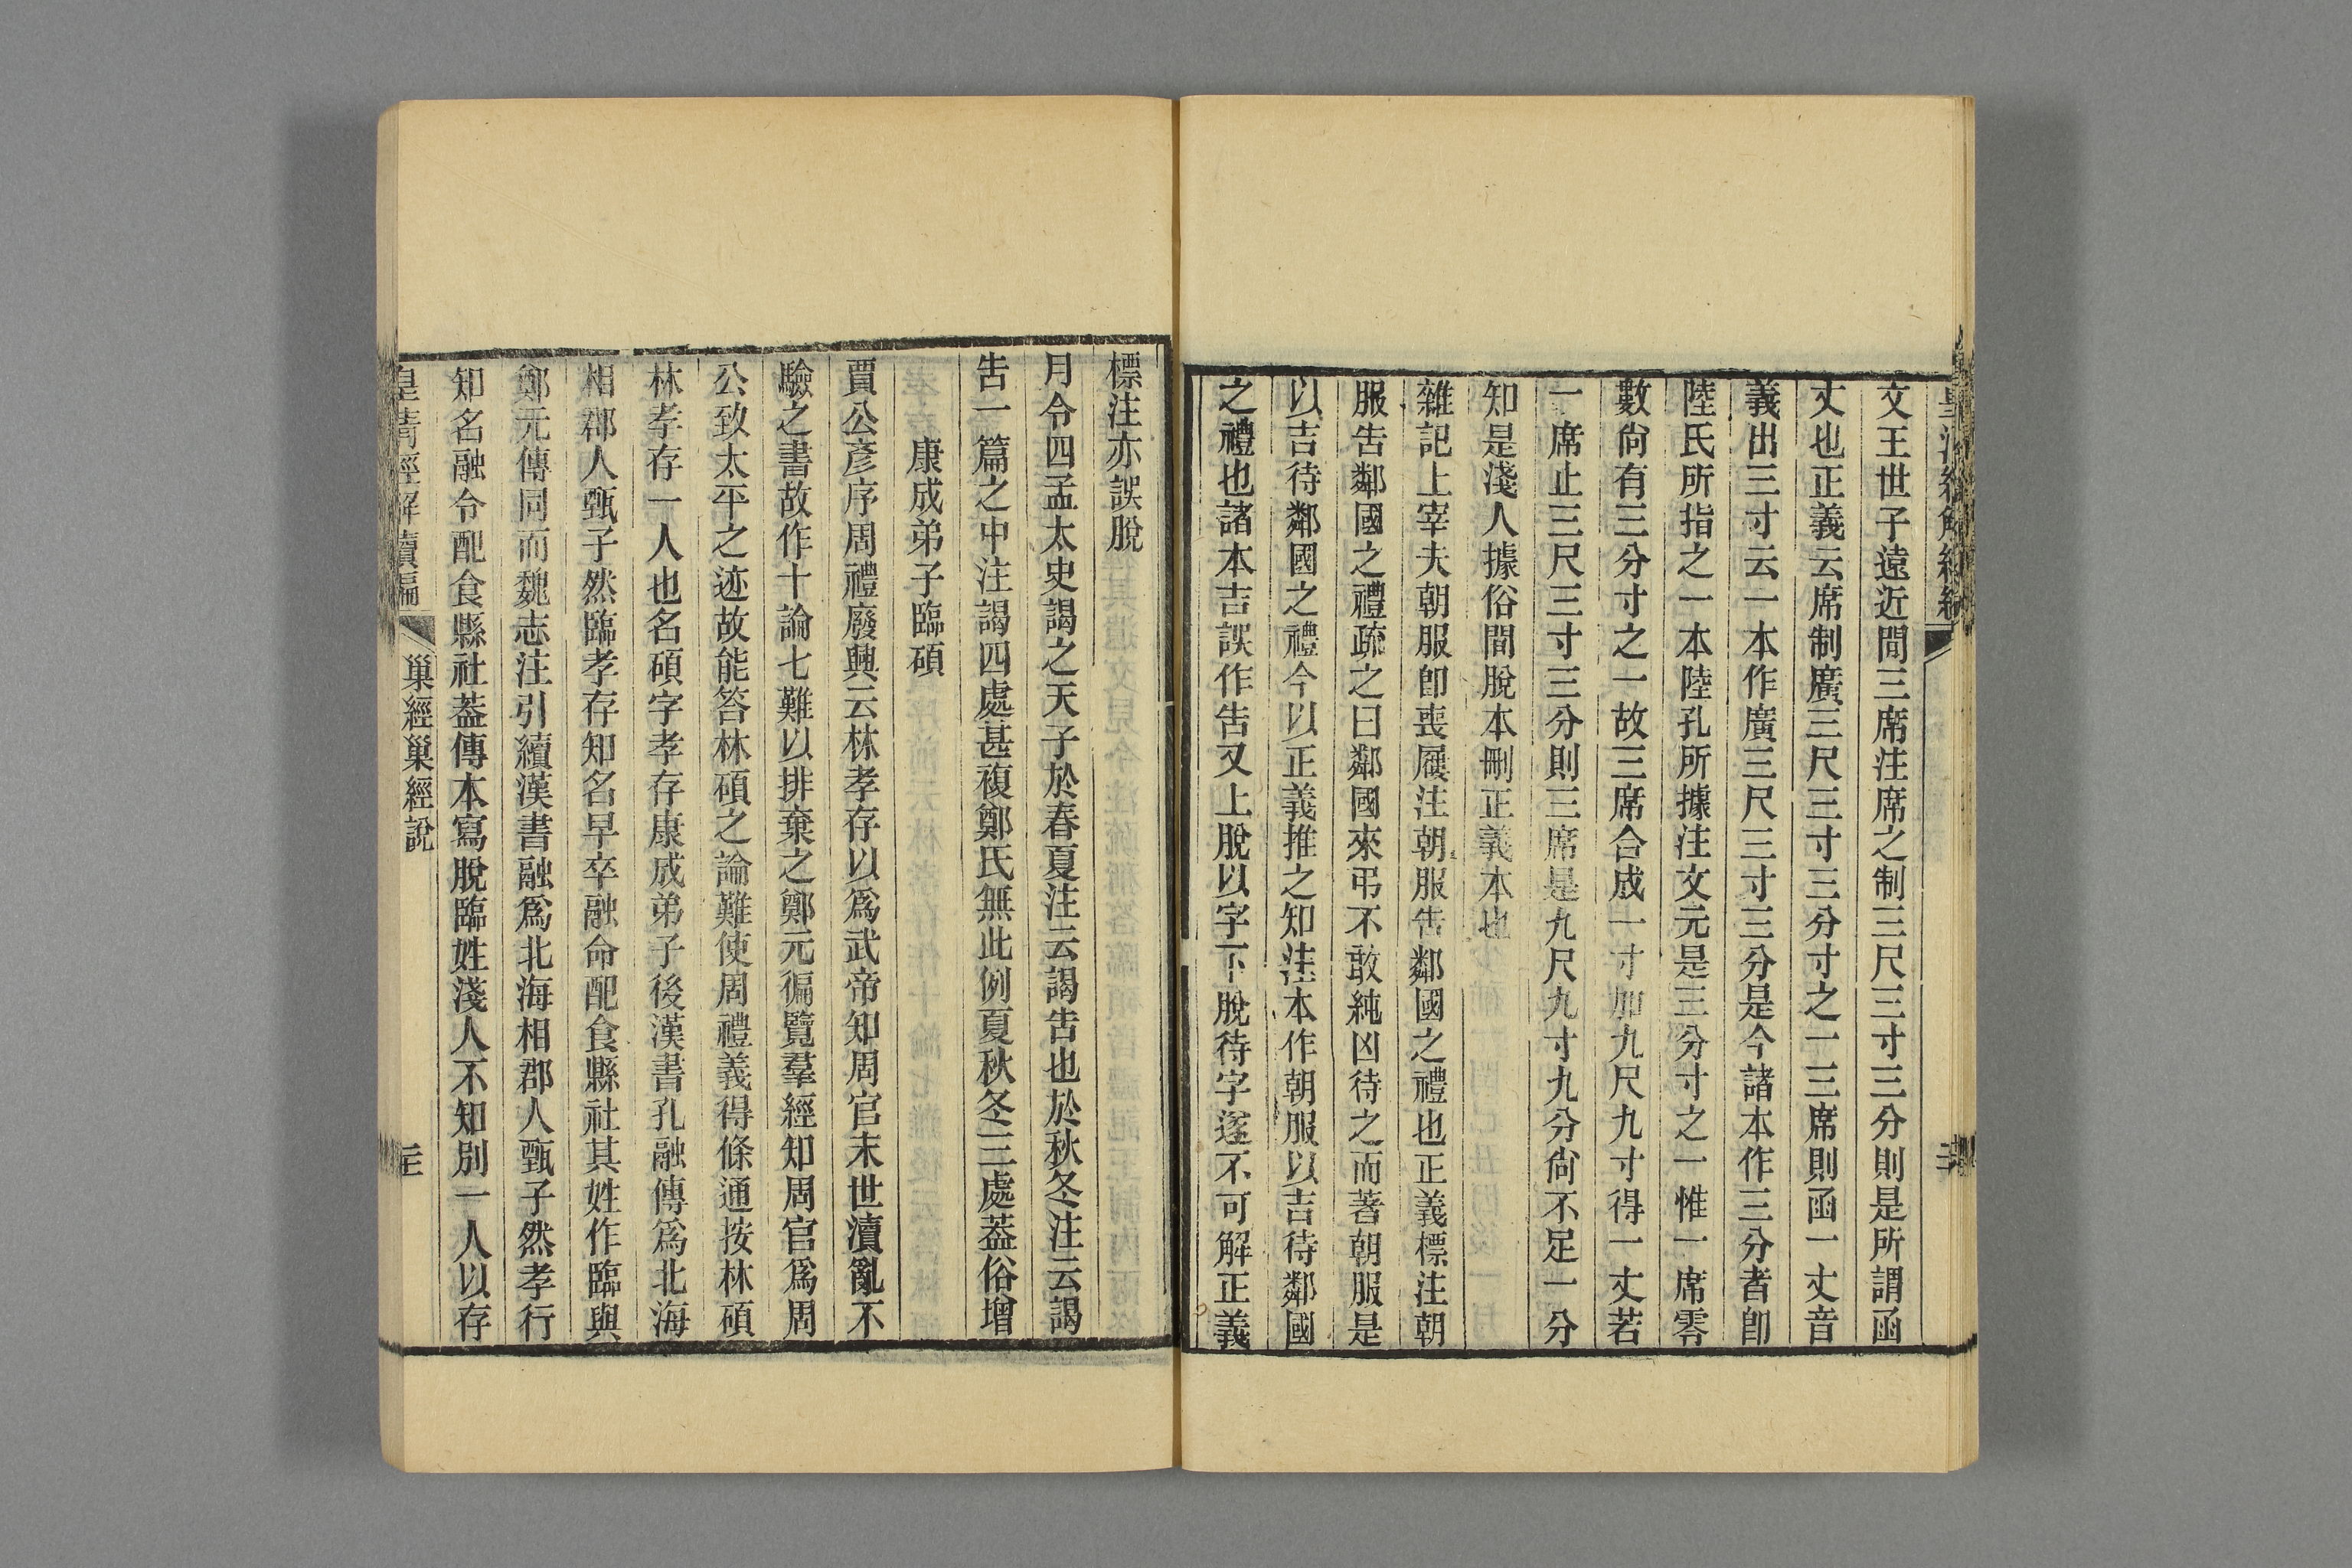 文王世子遠近間三席注席之制三尺三寸三分則是所謂函
丈也正義云席制廣三尺三寸三分寸之一三席則函一丈音
義出三寸云一本作廣三尺三寸三分是今諸本作三分者卽
陸氏所指之一本陸孔所據注文元是三分寸之一惟一席零
數尙有三分寸之一故三席合成一寸加九尺九寸得一丈若
一席止三尺三寸三分則三席是九尺九寸九分尙不足一分
知是淺人據俗間脫本刪正義本也
雜記上宰夫朝服卽喪屨注朝服告鄰國之禮也正義標注朝
服告鄰國之禮疏之曰鄰國來弔不敢純凶待之而著朝服是
以吉待鄰國之禮今以正義推之知注本作朝服以吉待鄰國
之禮也諸本吉誤作告又上脫以字下脫待字遂不可解正義
標注亦誤脫
月令四孟太史謁之天子於春夏注云謁告也於秋冬注云謁
告一篇之中注謁四處甚複鄭氏無此例夏秋冬三處葢俗增
康成弟子臨碩
賈公彥序周禮廢興云林孝存以爲武帝知周官末世瀆亂不
驗之書故作十論七難以排棄之鄭元徧覽羣經知周官爲周
公致太平之迹故能答林碩之論難使周禮義得條通按林碩
林孝存一人也名碩字孝存康成弟子後漢書孔融傳爲北海
相郡人甄子然臨孝存知名早卒融命配食縣社其姓作臨與
鄭元傳同而魏志注引續漢書融爲北海相郡人甄子然孝行
知名融令配食縣社葢傳本寫脫臨姓淺人不知別一人以存
皇清經解續編
巢經巢經說